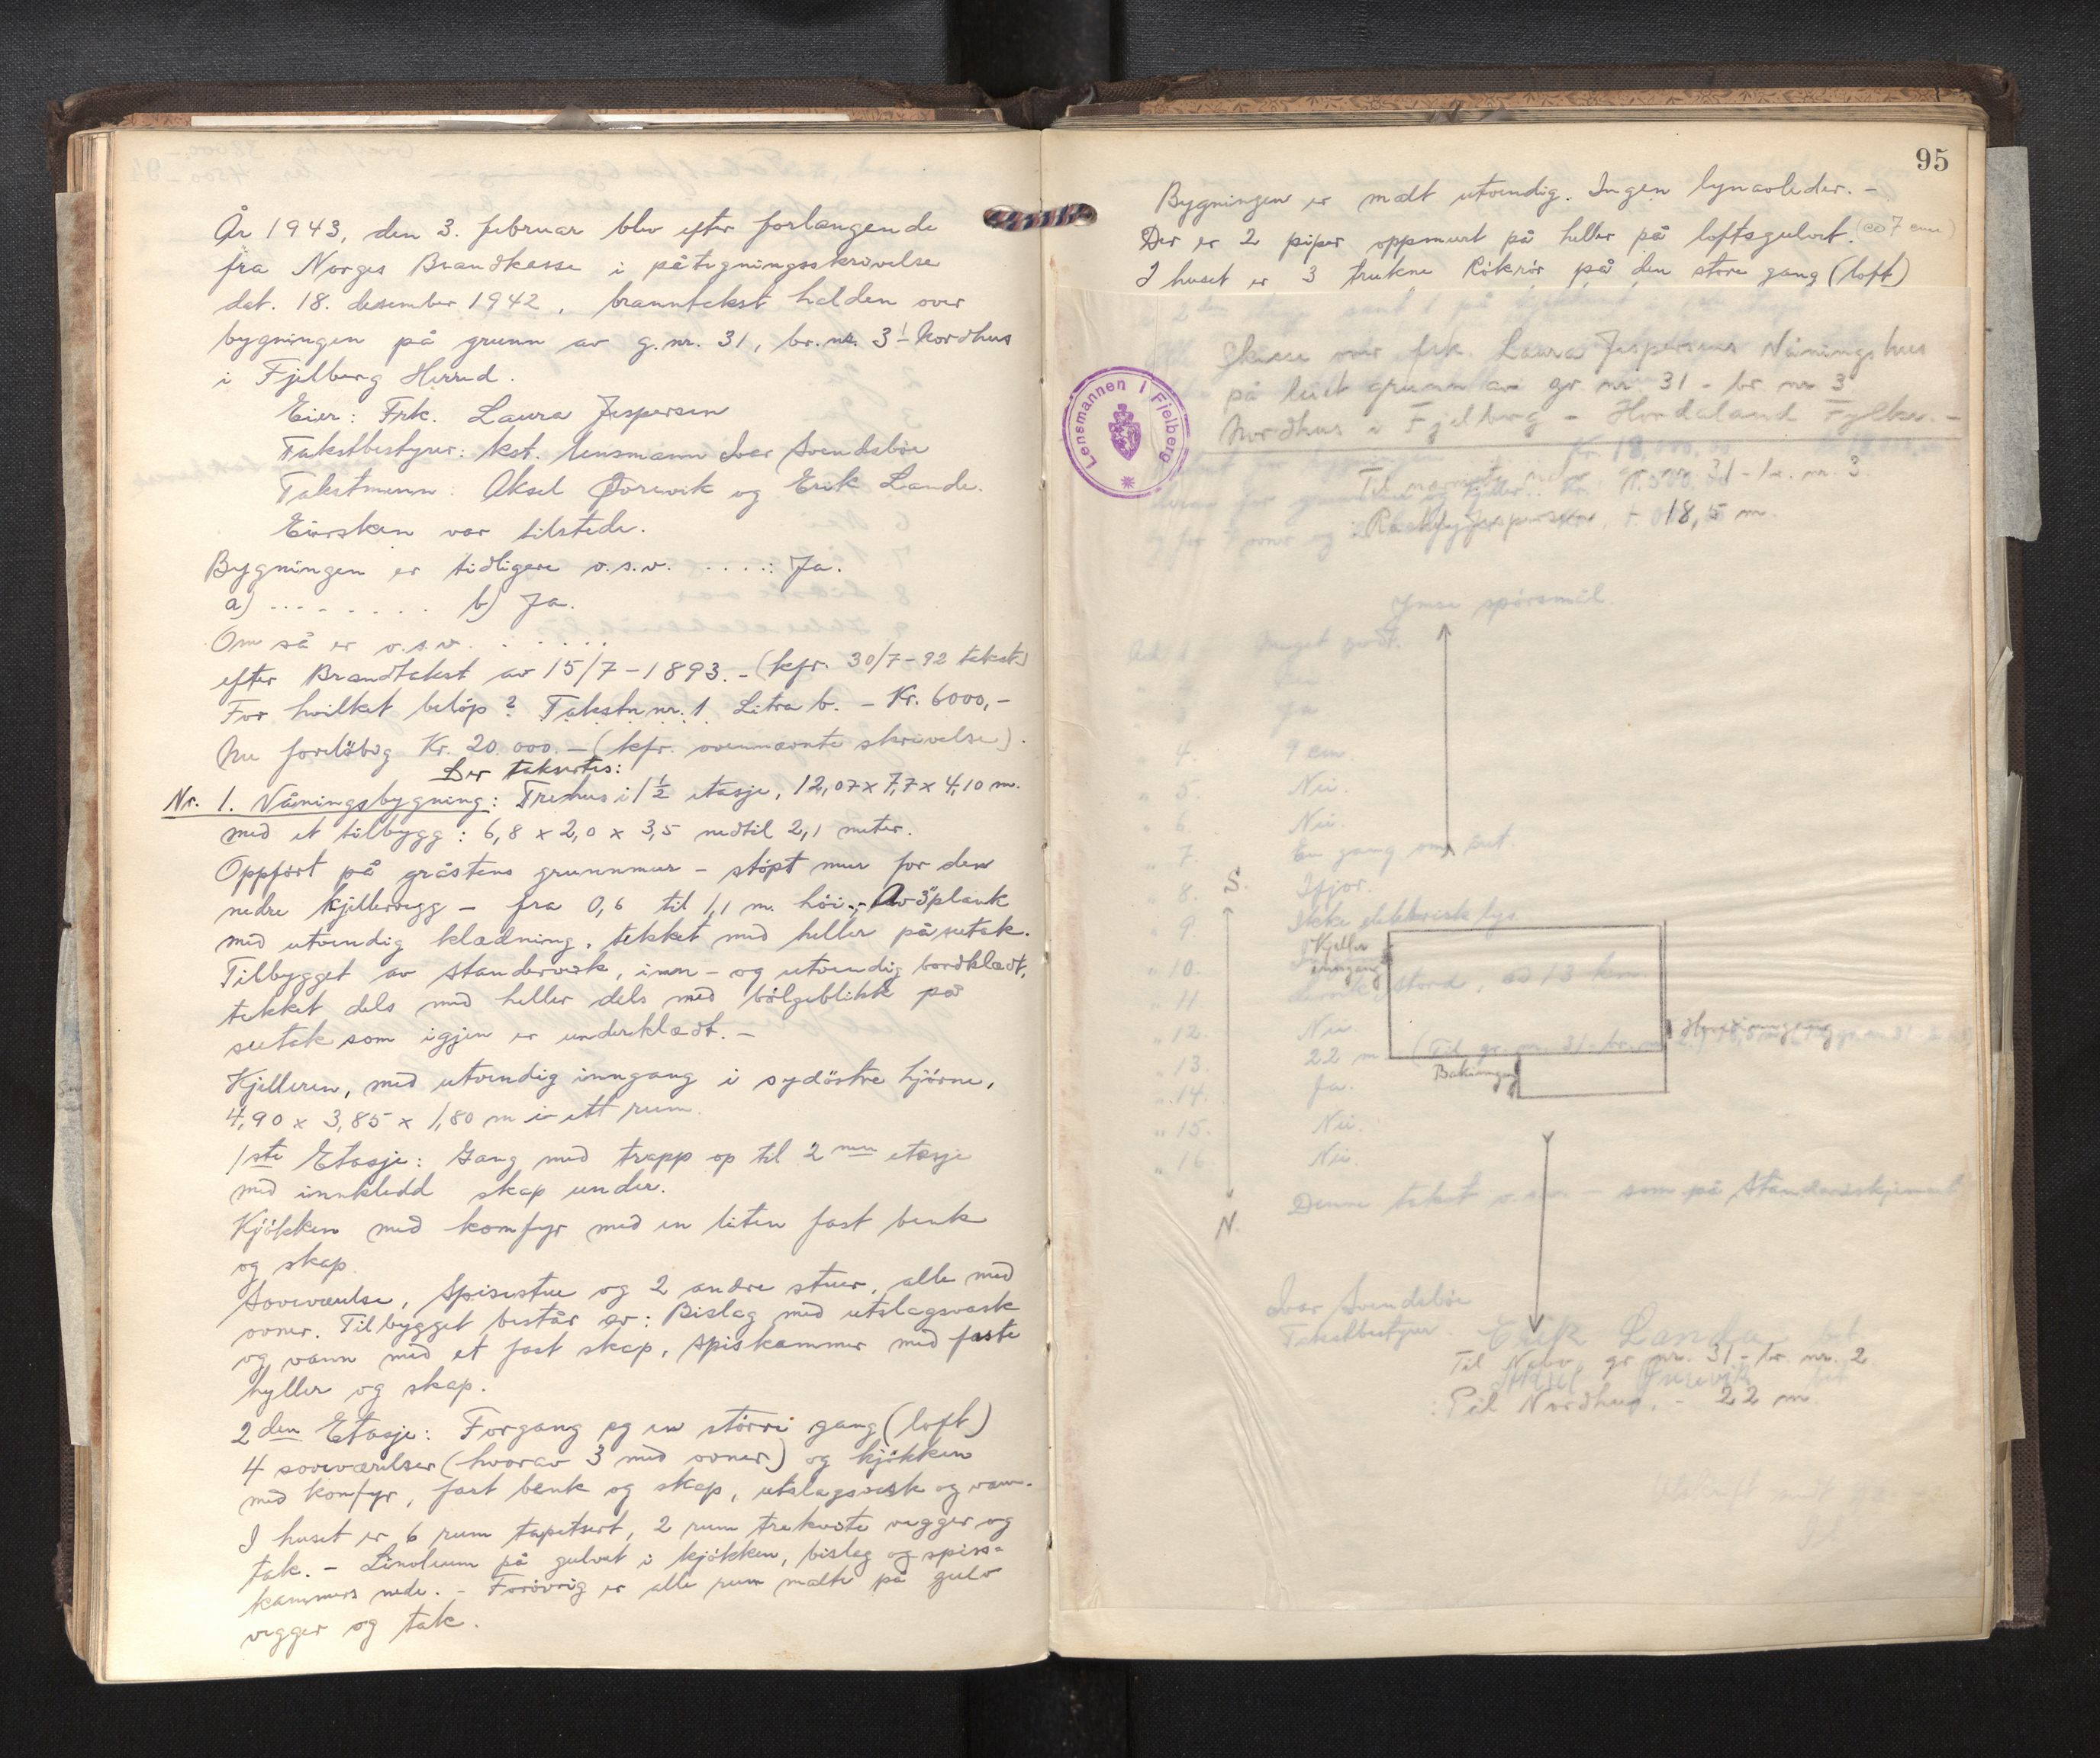 År 1943, den 3. februar blev efter forlangende
fra Norges Brandkasse i påtegningsskrivelse
dat. 18. desember 1942, branntakst holden over
bygningen på grunn av g.nr. 31, br. nr. 3 - Nordhus
i Fjelberg Herred.
Eier: Frk. Laura Jespersen
Takstbestyrer: kst. lensmann Ivar Svendsbøe
Takstmenn: Aksel Øvrevik og Erik Lande.
Eiersken var tilstede.
Bygningen er tidligere o.s.v. . . . .: Ja.
a) . . . . . . . . b) Ja.
Om så er o.s.v. . . . . .
efter Brandtakst av 15/7 - 1893. - (kfr. 30/7 - 92 takst.)
For hvilket beløp? Takstn nr. 1 Litra b. - Kr. 6000,-
Nu foreløbig Kr. 20.000.- (kfr. ovennævnte skrivelse).
Der taksertes:
Nr. 1. Våningsbygning: Trehus i 1 1/2 etasje, 12,07 x 7,7 x 4,10 m.
med et tilbygg: 6,8 x 2,0 x 3,5 nedtil 2,1 meter.
Oppført på gråstens grunnmur - støpt mur for den
nedre kjellervegg - fra 0,6 til 1,1 m. høi. - Av 3" plank
med utvendig klædning, tekket med heller på sutak.
Tilbygget av standerverk, inn- og utvendig bordklædt,
tekket dels med heller dels med bølgeblikk på
sutak som igjen er underklædt. -
Kjelleren, med utvendig inngang i sydøstre hjørne,
4,90 x 3,85 x 1,80 m i ett rum.
1ste Etasje: Gang med trapp op til 2nen etasje
med innkledd skap under.
Kjøkken med komfyr med en liten fast benk
og skap.
Soveværelse, Spisestue og 2 andre stuer, alle med
ovner. Tilbygget består av: Bislag med utslagsvask
og vann med et fast skap, spiskammer med faste
hyller og skap.
2den Etasje: Forgang og en større gang (loft)
4 soveværelser (hvorav 3 med ovner) og kjøkken
med komfyr, fast benk og skap, utslagsvask og vann.
I huset er 6 rum tapetsert, 2 rum trekvite vegger og
tak. - Linoleum på gulvet i kjøkken, bislag og spis-
kammers nede. - Forøvrig er alle rum malte på gulv
vegger og tak.
95
Bygningen er malt utvendig. Ingen lynavleder. -
Der er 2 piper oppmurt på heller på loftsgulvet. (ca 7 cm)
I huset er 3 trukne Rökrör på den store gang (loft)
Skisse over frk. Laura Jespersens Våningshus
på leiet grunn av gr. nr. 31 - br. nr. 3
Nordhus i Fjelberg - Hordaland Fylke. -
Lensmannen i Fjelberg
Til nærmeste nabo 31 - br. nr. 3
18,5 m.
Ymse spörsmål.
Meget godt.
Ja
4. 9 cm
5. Nei.
6. Nei.
7 En gang om året.
S.
8. Ifjor.
9. Ikke elektrisk lys.
Kjeller
inngang
10.
11. Stord, ca 13 km.
12. Nei.
Hovedinngang
13. 22 m (Til gr. nr. 31 - br. nr.
Bakinngang
14. Ja.
15. Nei.
16 Nei.
Denne takst o.s.v. - som på Standardskjemaet
N.
Ivar Svendsbøe
Takstbestyrer
Erik Lande
Til Nabo gr. nr. 31 - br. nr. 2
Aksel Øvrevik
Nordhus. - 22 m.